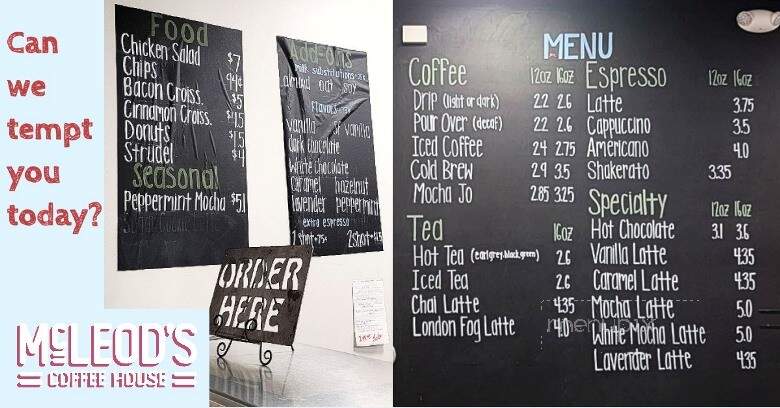 Can
we
tempt
you
today?
McLEOD'S
COFFEE HOUSE
Food
Chicken Salad $7
Chips 94¢
Bacon Croiss. $5
Cinnamon Croiss. $4.5
Donuts $1.5
Strudel $4
Seasonal
Peppermint Mocha $5.1
Add-ons
milk substitutions
almond oat soy
Flavors
vanilla sf vanilla
dark chocolate
white chocolate
caramel hazelnut
lavender peppermint
extra espresso
1 shot 75¢ 2 shot
ORDER
HERE
MENU
Coffee 12oz 16oz
Drip (light or dark) 2.2 2.6
Pour Over (decaf) 2.2 2.6
Iced Coffee 2.4 2.75
Cold Brew 2.9 3.5
Mocha Jo 2.85 3.25
Tea 16oz
Hot Tea (earl grey, black, green) 2.6
Iced Tea 2.6
Chai Latte 4.35
London Fog Latte 4.0
Espresso 12oz 16oz
Latte 3.75
Cappuccino 3.5
Americano 4.0
Shakerato 3.35
Specialty 12oz 16oz
Hot Chocolate 3.1 3.6
Vanilla Latte 4.35
Caramel Latte 4.35
Mocha Latte 5.0
White Mocha Latte 5.0
Lavender Latte 4.35